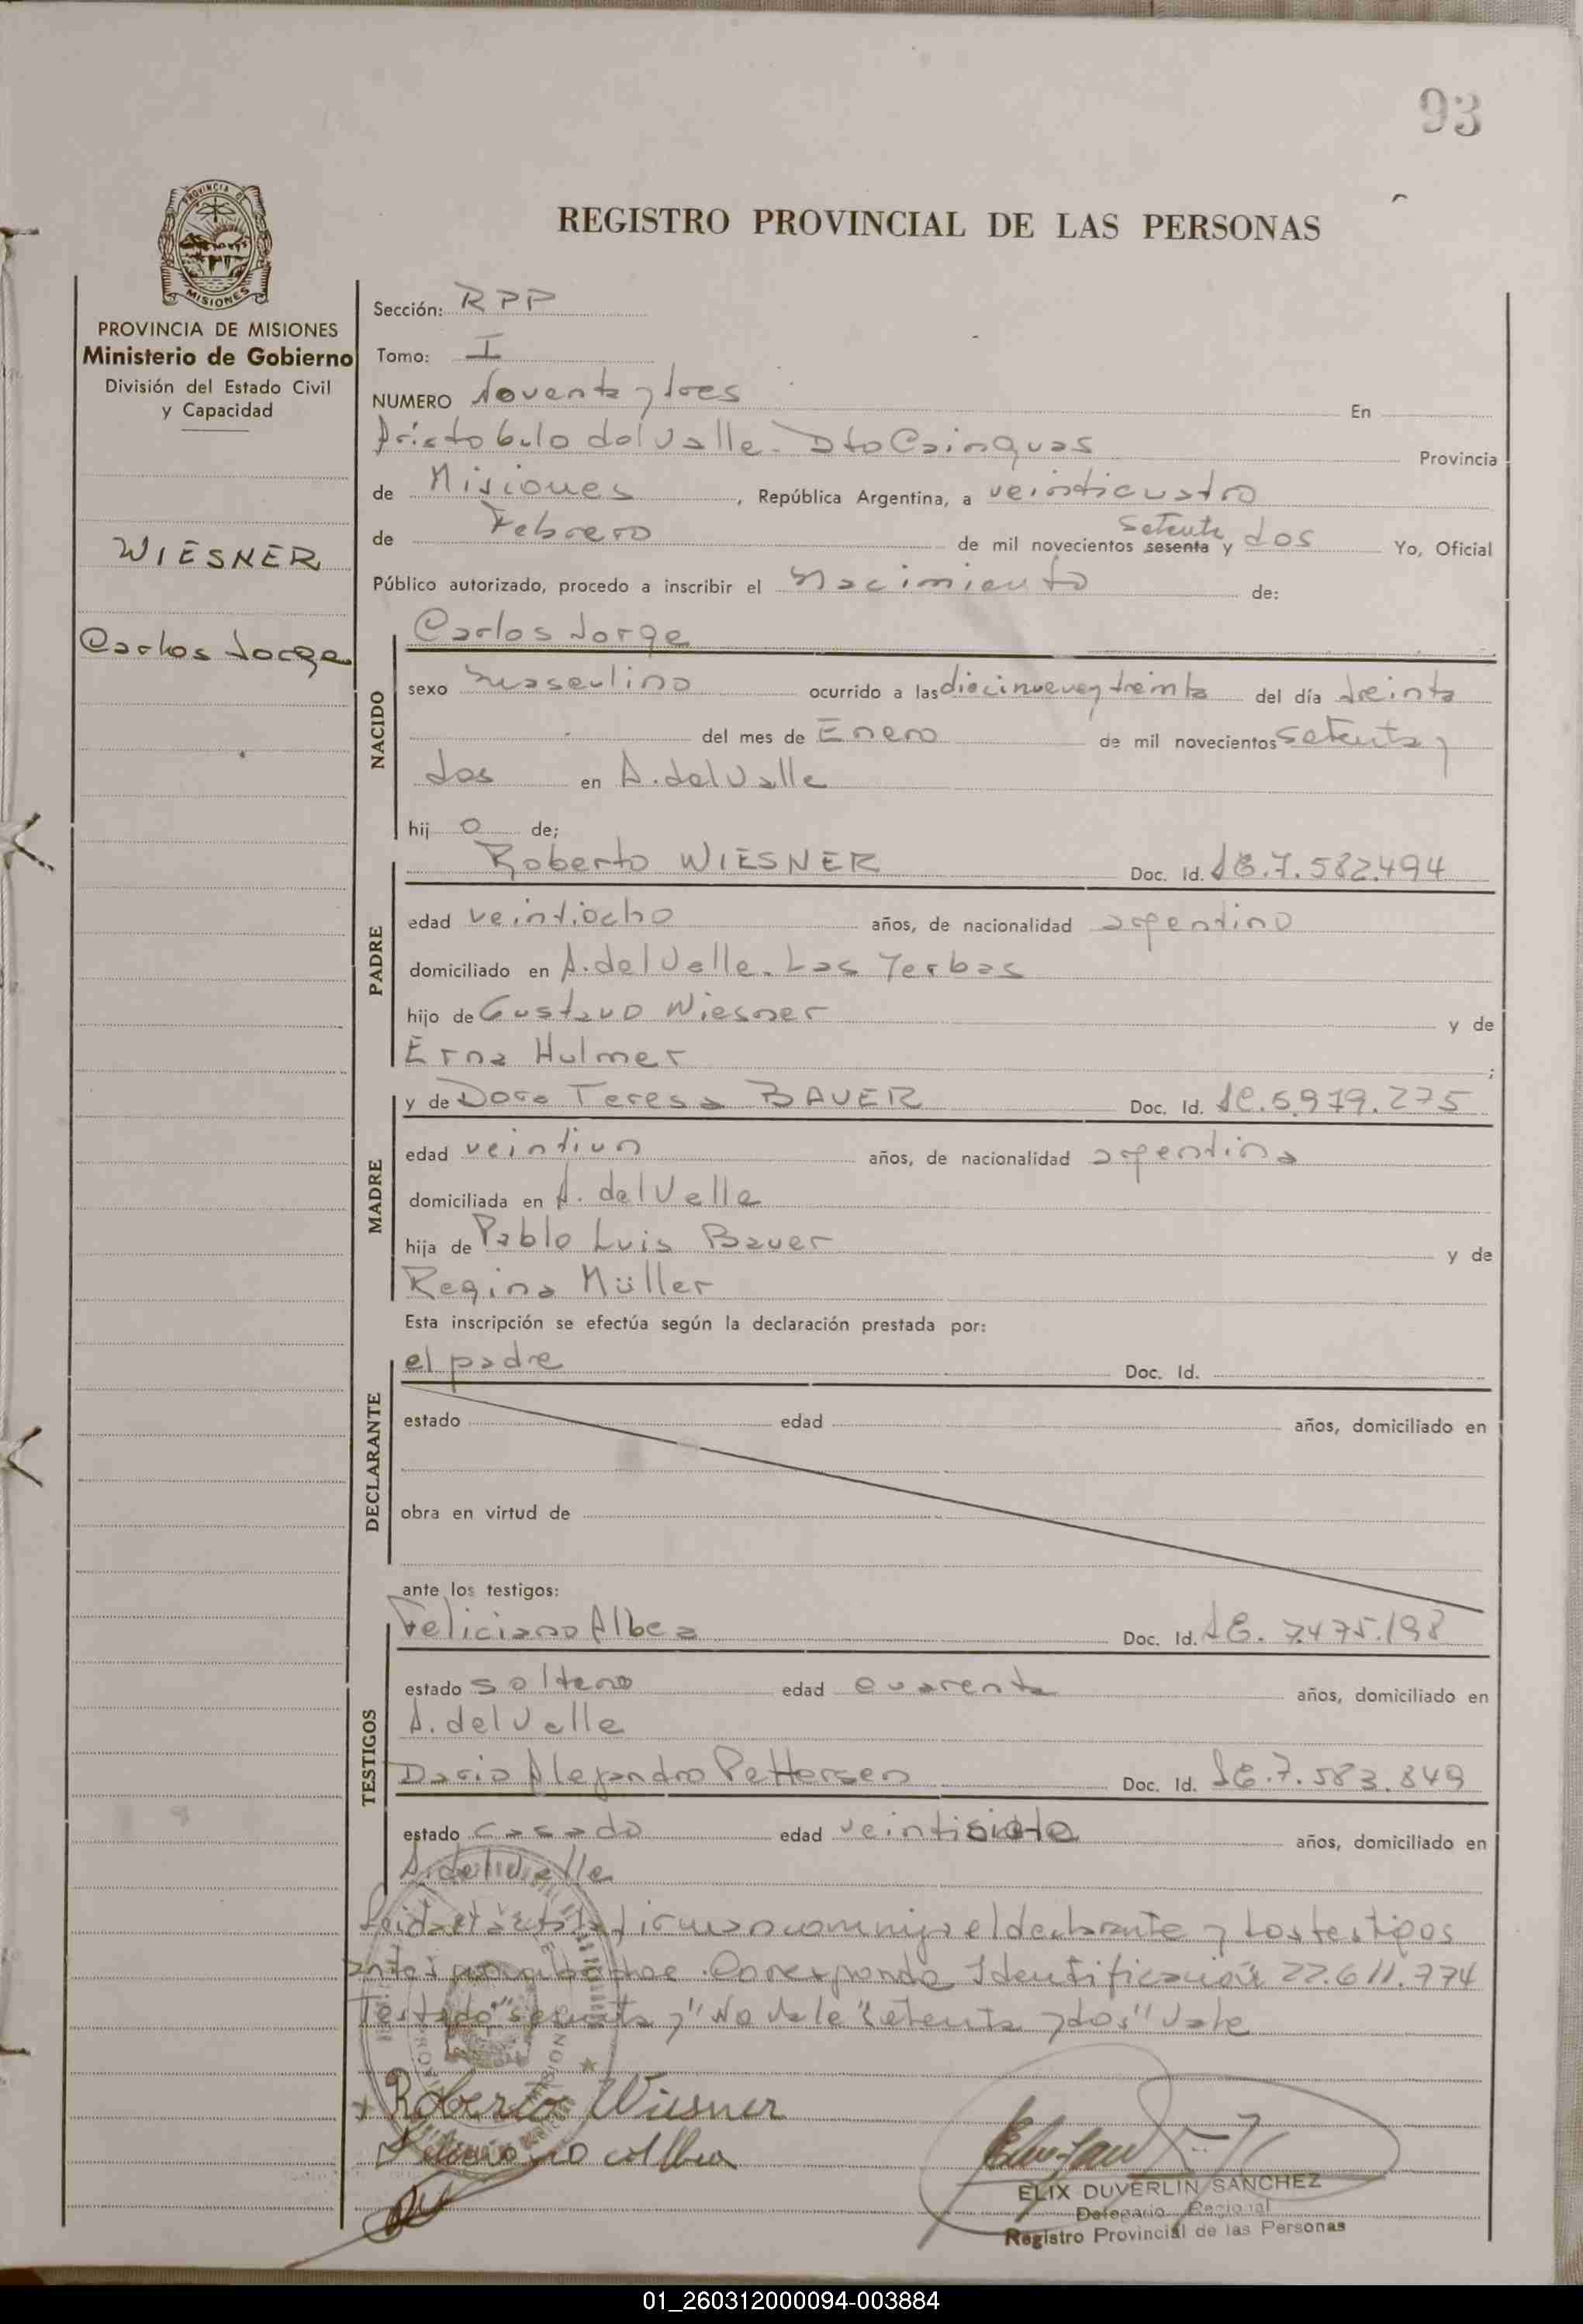 93
REGISTRO PROVINCIAL DE LAS PERSONAS
PROVINCIA DE MISIONES
Ministerio de Gobierno
División del Estado Civil
y Capacidad
WIESNER
Carlos Jorge
Sección: RPP
Tomo: I
NUMERO Noventa y tres En
Aristobulo del Valle - Dto Cainguas Provincia
de Misiones, República Argentina, a veinticuatro
de Febrero de mil novecientos sesenta y setenta dos Yo, Oficial
Público autorizado, procedo a inscribir el Nacimiento de:
NACIDO
Carlos Jorge
sexo masculino ocurrido a las diecinueve y treinta del día treinta
del mes de Enero de mil novecientos setenta y
dos en A. del Valle
hijo de;
PADRE
Roberto WIESNER Doc. Id. LE.7.582.494
edad veintiocho años, de nacionalidad argentino
domiciliado en A. del Valle. Las Yerbas
hijo de Gustavo Wiesner y de
Erna Hulmer;
MADRE
y de Dora Teresa BAUER Doc. Id. LC.5.979.275
edad veintiun años, de nacionalidad argentina
domiciliada en A. del Valle
hija de Pablo Luis Bauer y de
Regina Müller
Esta inscripción se efectúa según la declaración prestada por:
DECLARANTE
el padre Doc. Id.
estado edad años, domiciliado en
obra en virtud de
ante los testigos:
TESTIGOS
Feliciano Albea Doc. Id. LE. 7.475.198
estado soltero edad cuarenta años, domiciliado en
A. del Valle
Dario Alejandro Pettersen Doc. Id. LE.7.583.849
estado casado edad veintisiete años, domiciliado en
A. del Valle
Leida el acta la firman conmigo el declarante y los testigos
antes nombrados. Corresponde Identificación 22.611.774
Testado "sesenta y" No vale "setenta y dos" Vale
Roberto Wiesner
ELIX DUVERLIN SANCHEZ
Delegado Regional
Registro Provincial de las Personas
01_260312000094-003884